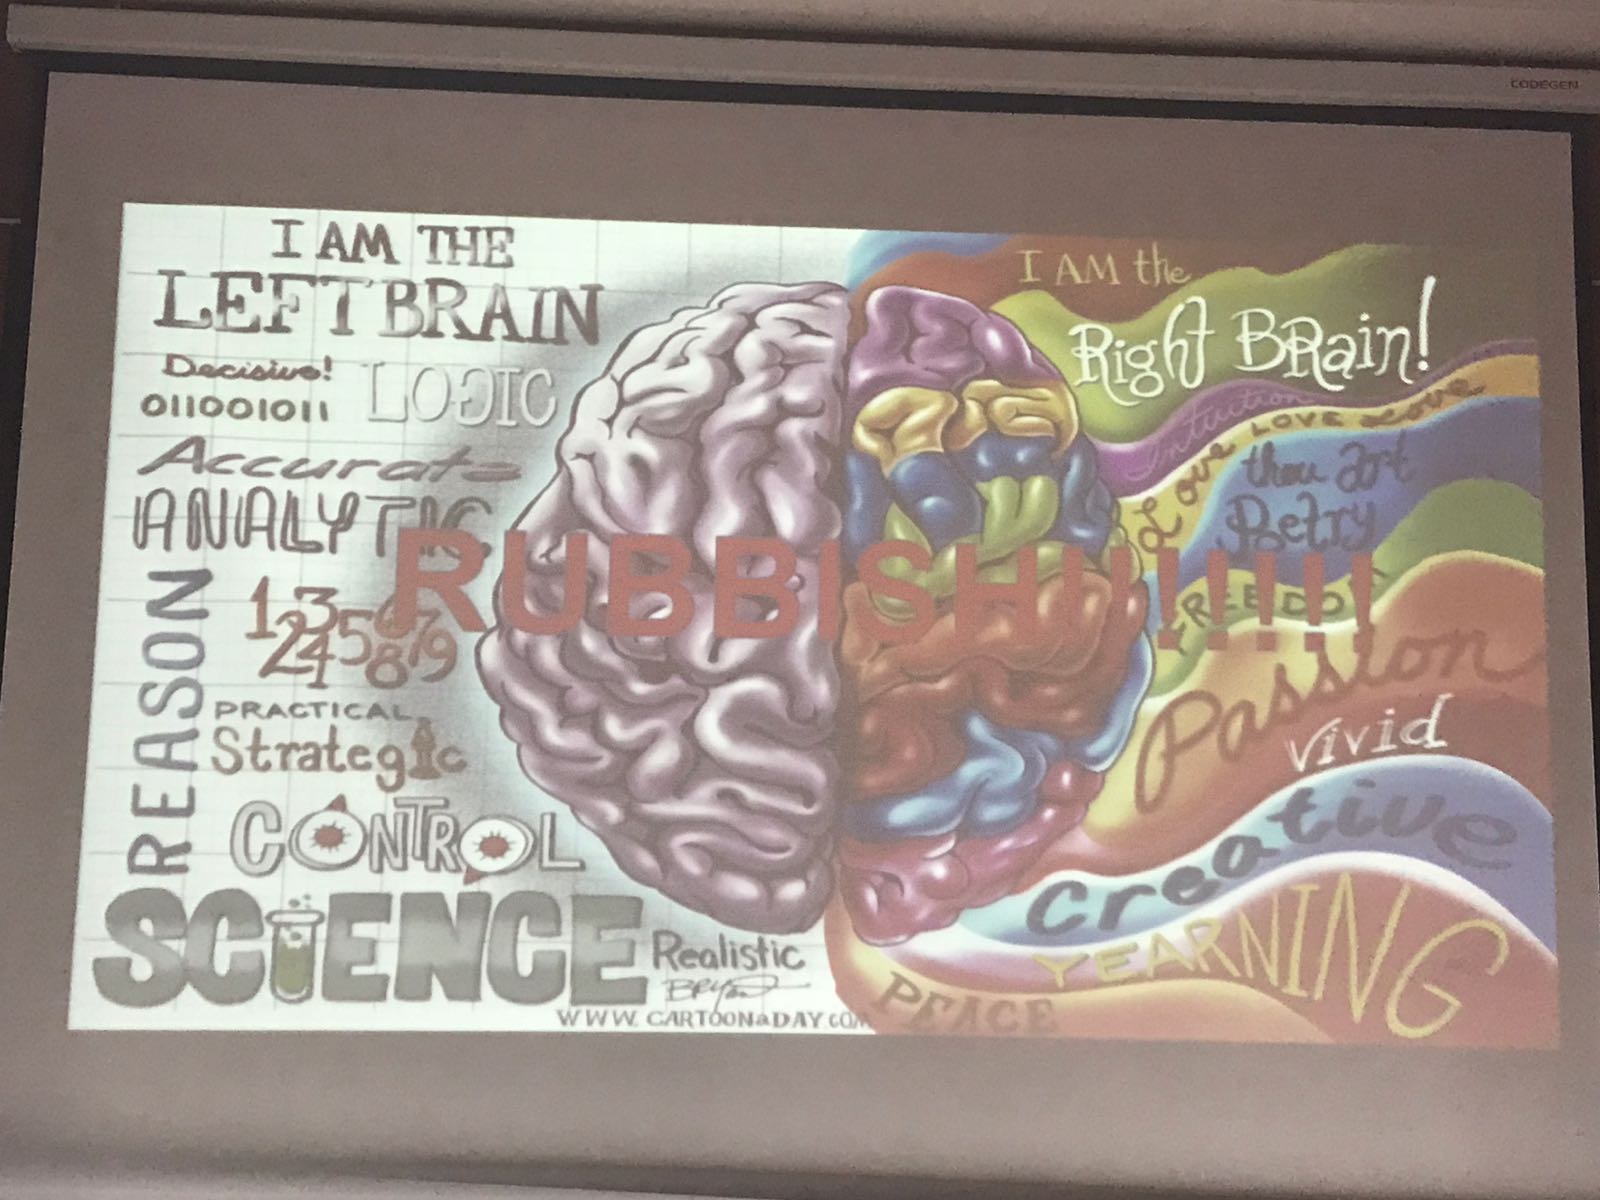 CODEGEN
I AM THE
LEFT BRAIN
Decisive!
LOGIC
011001011
Accurate
ANALYTIC
REASON
123456789
PRACTICAL
Strategic
CONTROL
SCIENCE
Realistic
WWW.CARTOONaDAY.COM
RUBBISH!!!!!!!
I AM the
Right BRain!
Intuition
Love LOVE Love
thou art
Poetry
FREEDOM
Passion
Vivid
Creative
YEARNING
PEACE